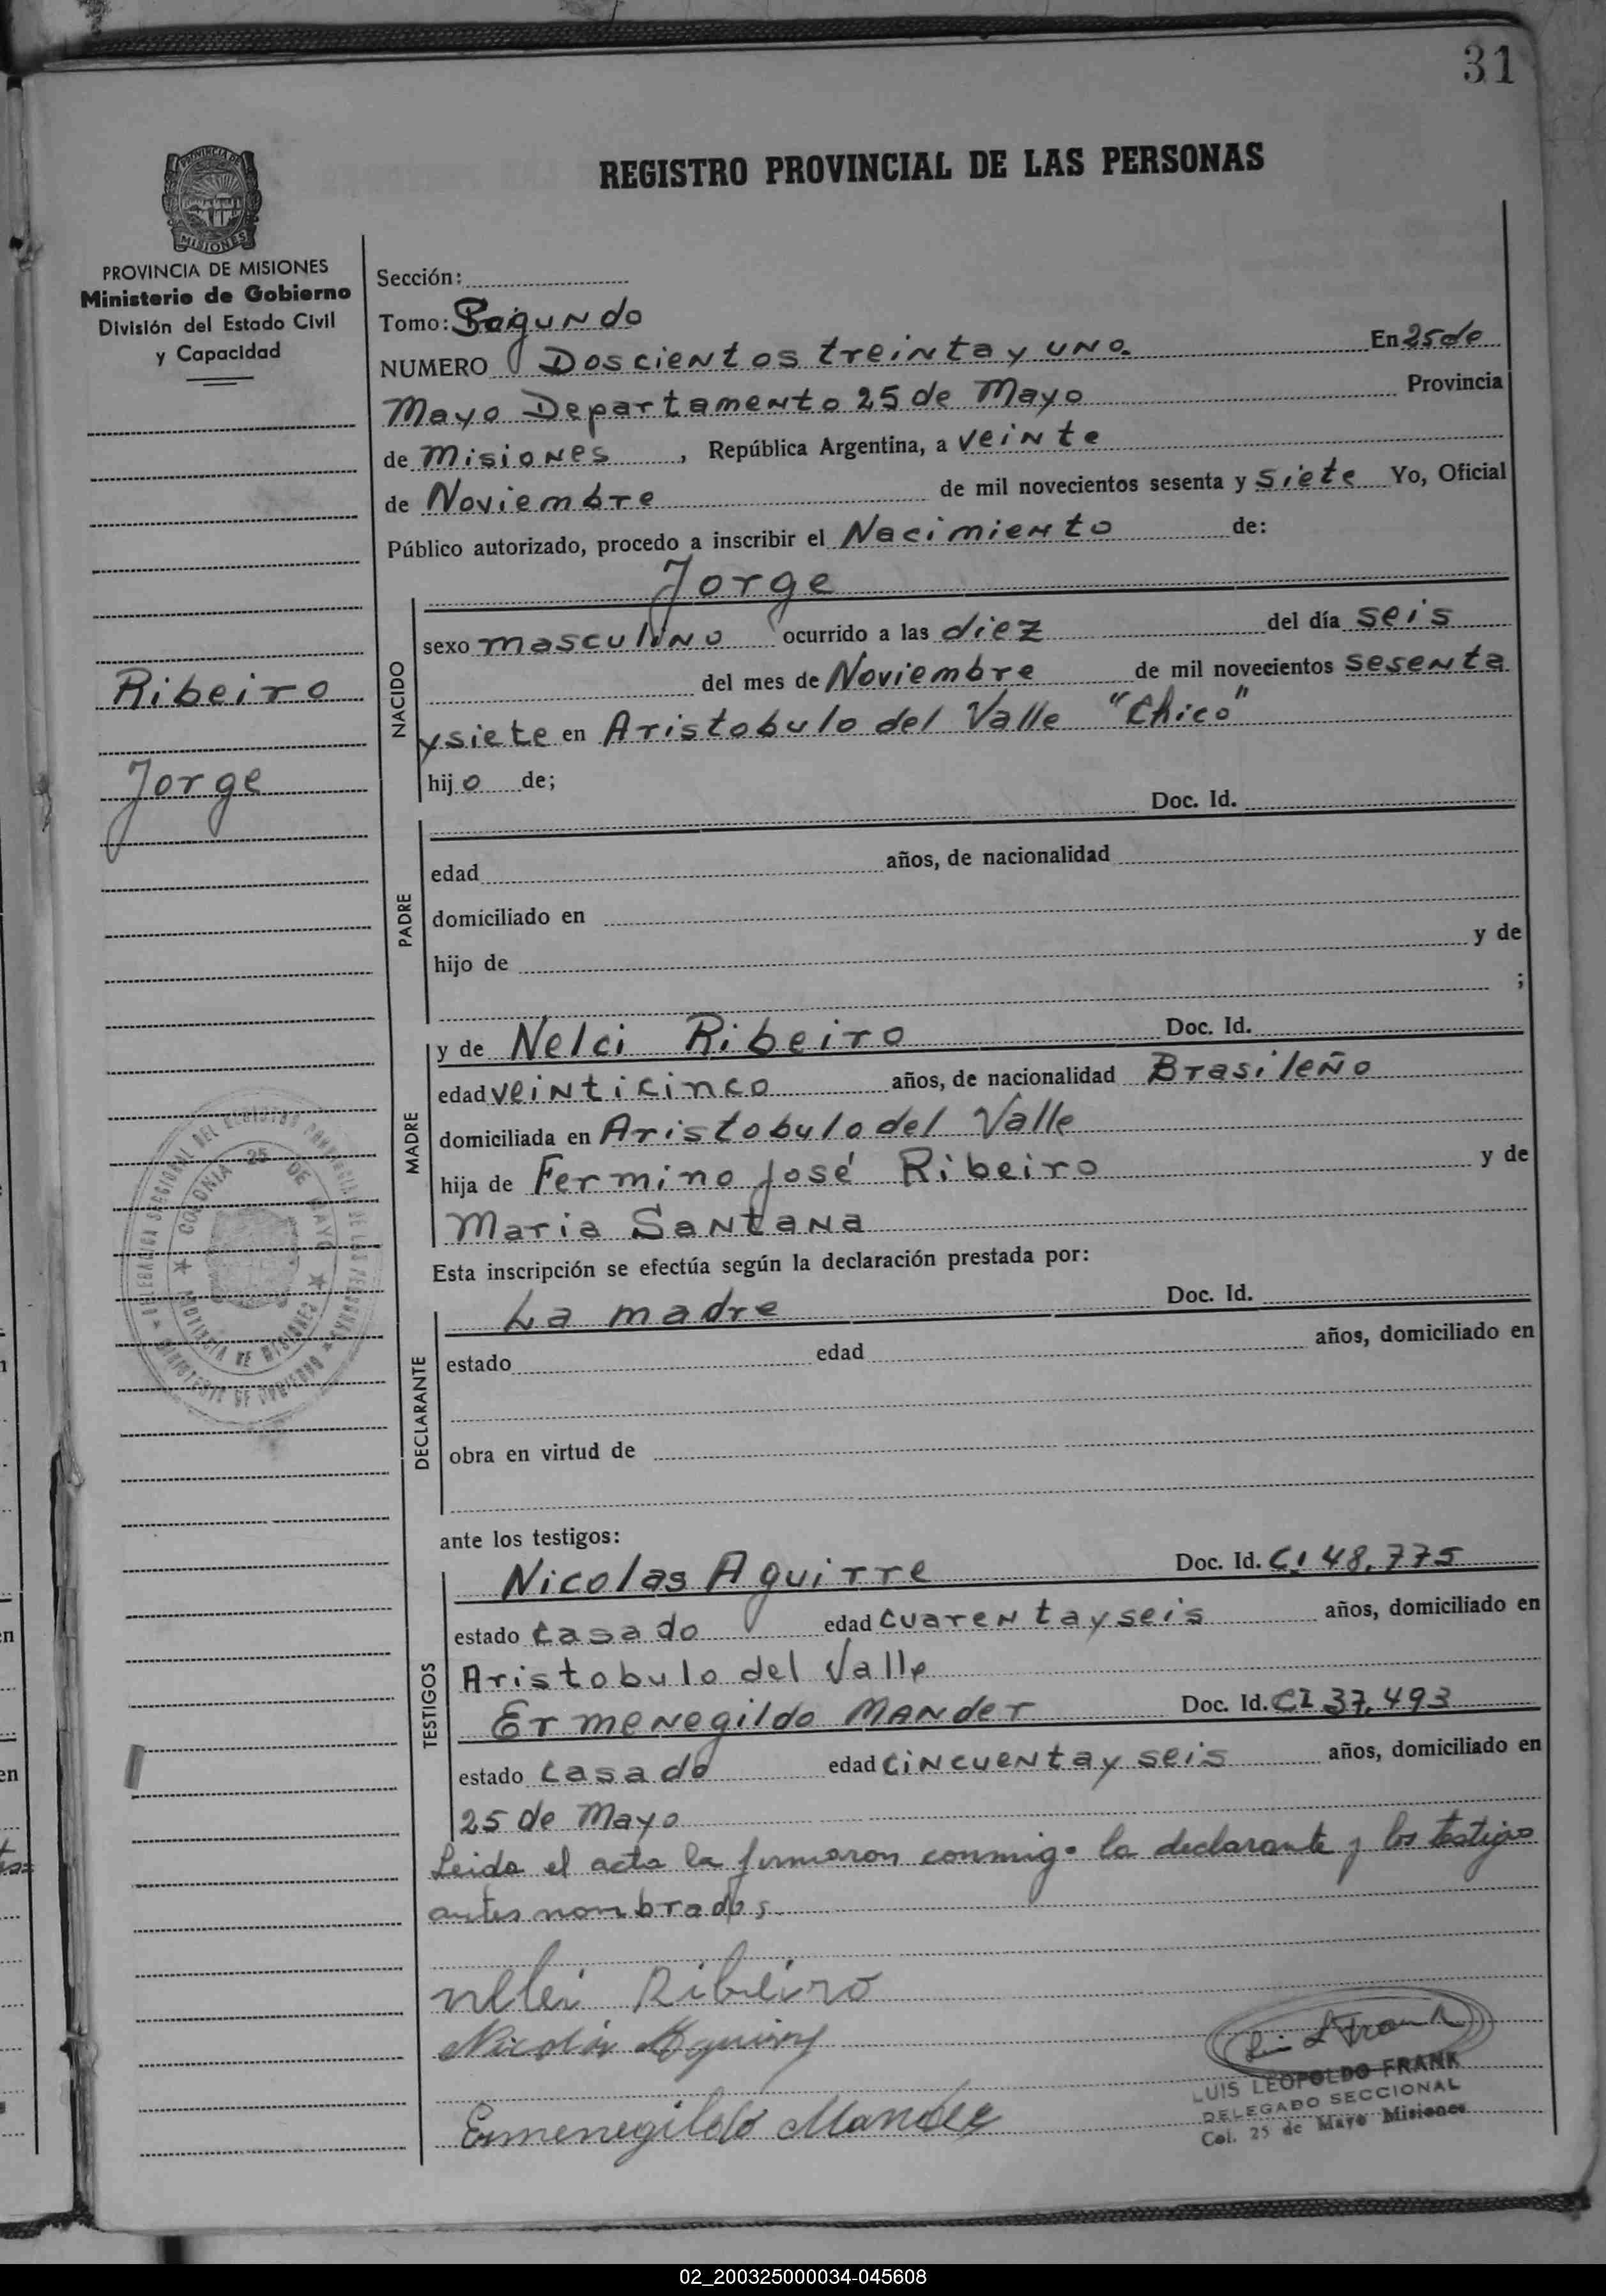 31
REGISTRO PROVINCIAL DE LAS PERSONAS
PROVINCIA DE MISIONES
Ministerio de Gobierno
División del Estado Civil
y Capacidad
Ribeiro
Jorge
Sección:
Tomo: Segundo
NUMERO Doscientos treinta y uno. En 25 de
Mayo Departamento 25 de Mayo Provincia
de Misiones, República Argentina, a veinte
de Noviembre de mil novecientos sesenta y siete Yo, Oficial
Público autorizado, procedo a inscribir el Nacimiento de:
Jorge
NACIDO
sexo masculino ocurrido a las diez del día seis
del mes de Noviembre de mil novecientos sesenta
y siete en Aristobulo del Valle "Chico"
hijo de;
Doc. Id.
PADRE
edad años, de nacionalidad
domiciliado en
hijo de y de
;
MADRE
y de Nelci Ribeiro Doc. Id.
edad veinticinco años, de nacionalidad Brasileño
domiciliada en Aristobulo del Valle
hija de Fermino José Ribeiro y de
Maria Santana
Esta inscripción se efectúa según la declaración prestada por:
DECLARANTE
La madre Doc. Id.
estado edad años, domiciliado en
obra en virtud de
ante los testigos:
TESTIGOS
Nicolas Aguirre Doc. Id. C.I 48.775
estado casado edad cuarenta y seis años, domiciliado en
Aristobulo del Valle
Ermenegildo Mander Doc. Id. CI 37.493
estado casado edad cincuenta y seis años, domiciliado en
25 de Mayo
Leida el acta la firmaron conmigo la declarante y los testigos
antes nombrados.
nelci Ribeiro
Nicolás Aguirre
Ermenegildo Mander
LUIS LEOPOLDO FRANK
DELEGADO SECCIONAL
Col. 25 de Mayo Misiones
COLONIA 25 DE MAYO
PROVINCIA DE MISIONES
02_200325000034-045608